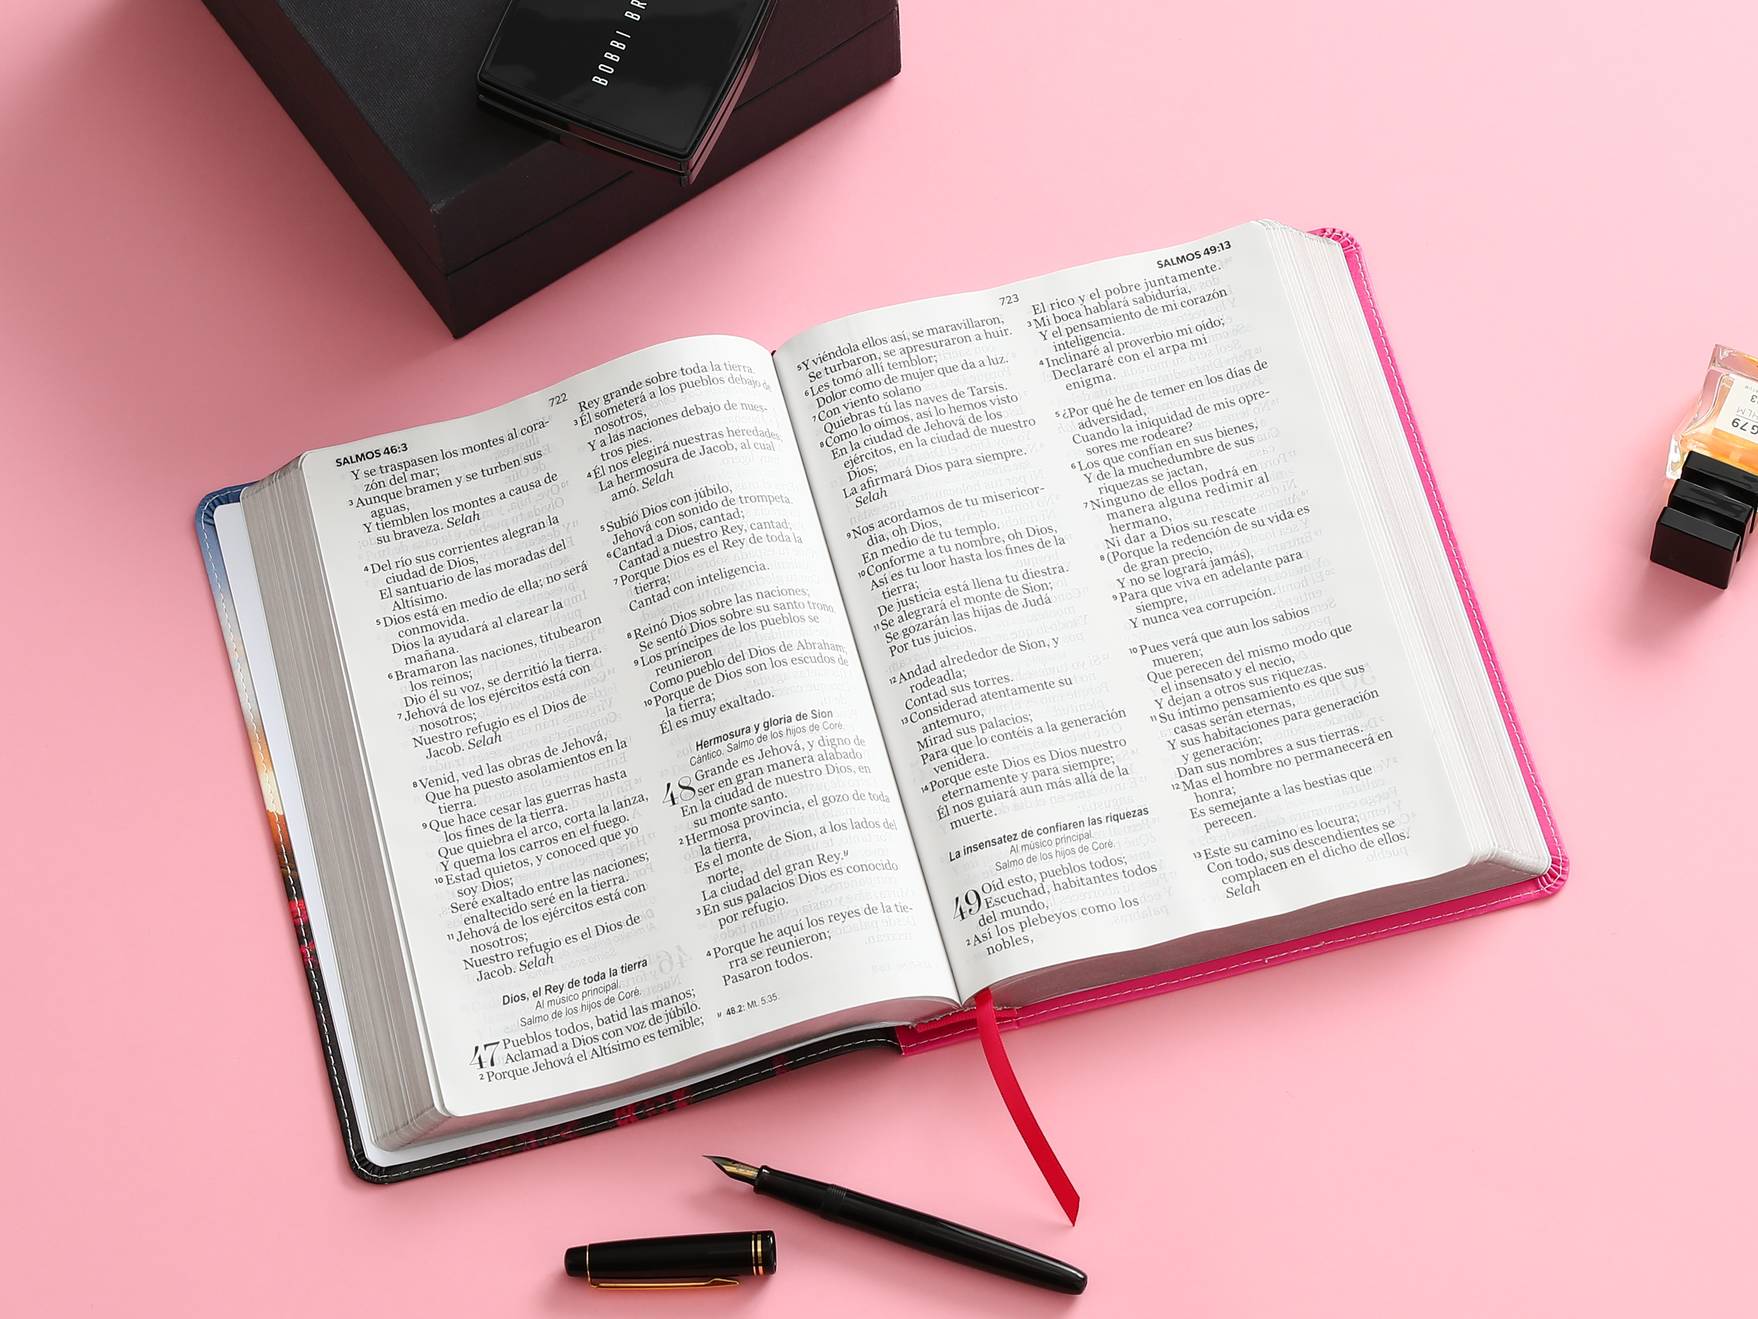 BOBBI BR
SALMOS 46:3
722
Y se traspasen los montes al cora-
zón del mar;
3 Aunque bramen y se turben sus
aguas,
Y tiemblen los montes a causa de
su braveza. Selah
4 Del río sus corrientes alegran la
ciudad de Dios,
El santuario de las moradas del
Altísimo.
5 Dios está en medio de ella; no será
conmovida.
Dios la ayudará al clarear la
mañana.
6 Bramaron las naciones, titubearon
los reinos;
Dio él su voz, se derritió la tierra.
7 Jehová de los ejércitos está con
nosotros;
Nuestro refugio es el Dios de
Jacob. Selah
8 Venid, ved las obras de Jehová,
Que ha puesto asolamientos en la
tierra.
9 Que hace cesar las guerras hasta
los fines de la tierra.
Que quiebra el arco, corta la lanza,
Y quema los carros en el fuego.
10 Estad quietos, y conoced que yo
soy Dios;
Seré exaltado entre las naciones;
enaltecido seré en la tierra.
11 Jehová de los ejércitos está con
nosotros;
Nuestro refugio es el Dios de
Jacob. Selah
Dios, el Rey de toda la tierra
Al músico principal.
Salmo de los hijos de Coré.
47 Pueblos todos, batid las manos;
Aclamad a Dios con voz de júbilo.
2 Porque Jehová el Altísimo es temible;
Rey grande sobre toda la tierra.
3 Él someterá a los pueblos debajo de
nosotros,
Y a las naciones debajo de nues-
tros pies.
4 Él nos elegirá nuestras heredades;
La hermosura de Jacob, al cual
amó. Selah
5 Subió Dios con júbilo,
Jehová con sonido de trompeta.
6 Cantad a Dios, cantad;
Cantad a nuestro Rey, cantad;
7 Porque Dios es el Rey de toda la
tierra;
Cantad con inteligencia.
8 Reinó Dios sobre las naciones;
Se sentó Dios sobre su santo trono.
9 Los príncipes de los pueblos se
reunieron
Como pueblo del Dios de Abraham;
10 Porque de Dios son los escudos de
la tierra;
Él es muy exaltado.
Hermosura y gloria de Sion
Cántico. Salmo de los hijos de Coré.
48 Grande es Jehová, y digno de
ser en gran manera alabado
En la ciudad de nuestro Dios, en
su monte santo.
2 Hermosa provincia, el gozo de toda
la tierra,
Es el monte de Sion, a los lados del
norte,
La ciudad del gran Rey.
3 En sus palacios Dios es conocido
por refugio.
4 Porque he aquí los reyes de la tie-
rra se reunieron;
Pasaron todos.
48.2: Mt. 5.35.
723
SALMOS 49:13
5 Y viéndola ellos así, se maravillaron,
Se turbaron, se apresuraron a huir.
6 Les tomó allí temblor;
Dolor como de mujer que da a luz.
7 Con viento solano
Quiebras tú las naves de Tarsis.
8 Como lo oímos, así lo hemos visto
En la ciudad de Jehová de los
ejércitos, en la ciudad de nuestro
Dios;
La afirmará Dios para siempre.
Selah
9 Nos acordamos de tu misericor-
dia, oh Dios,
En medio de tu templo.
10 Conforme a tu nombre, oh Dios,
Así es tu loor hasta los fines de la
tierra;
De justicia está llena tu diestra.
11 Se alegrará el monte de Sion;
Se gozarán las hijas de Judá
Por tus juicios.
12 Andad alrededor de Sion, y
rodeadla;
Contad sus torres.
13 Considerad atentamente su
antemuro,
Mirad sus palacios;
Para que lo contéis a la generación
venidera.
14 Porque este Dios es Dios nuestro
eternamente y para siempre;
Él nos guiará aun más allá de la
muerte.
La insensatez de confiar en las riquezas
Al músico principal.
Salmo de los hijos de Coré.
49 Oíd esto, pueblos todos;
Escuchad, habitantes todos
del mundo,
2 Así los plebeyos como los
nobles,
El rico y el pobre juntamente.
3 Mi boca hablará sabiduría,
Y el pensamiento de mi corazón
inteligencia.
4 Inclinaré al proverbio mi oído;
Declararé con el arpa mi
enigma.
5 ¿Por qué he de temer en los días de
adversidad,
Cuando la iniquidad de mis opre-
sores me rodeare?
6 Los que confían en sus bienes,
Y de la muchedumbre de sus
riquezas se jactan,
7 Ninguno de ellos podrá en
manera alguna redimir al
hermano,
Ni dar a Dios su rescate
8 (Porque la redención de su vida es
de gran precio,
Y no se logrará jamás),
9 Para que viva en adelante para
siempre,
Y nunca vea corrupción.
10 Pues verá que aun los sabios
mueren;
Que perecen del mismo modo que
el insensato y el necio,
Y dejan a otros sus riquezas.
11 Su íntimo pensamiento es que sus
casas serán eternas,
Y sus habitaciones para generación
y generación;
Dan sus nombres a sus tierras.
12 Mas el hombre no permanecerá en
honra;
Es semejante a las bestias que
perecen.
13 Este su camino es locura;
Con todo, sus descendientes se
complacen en el dicho de ellos.
Selah
G79